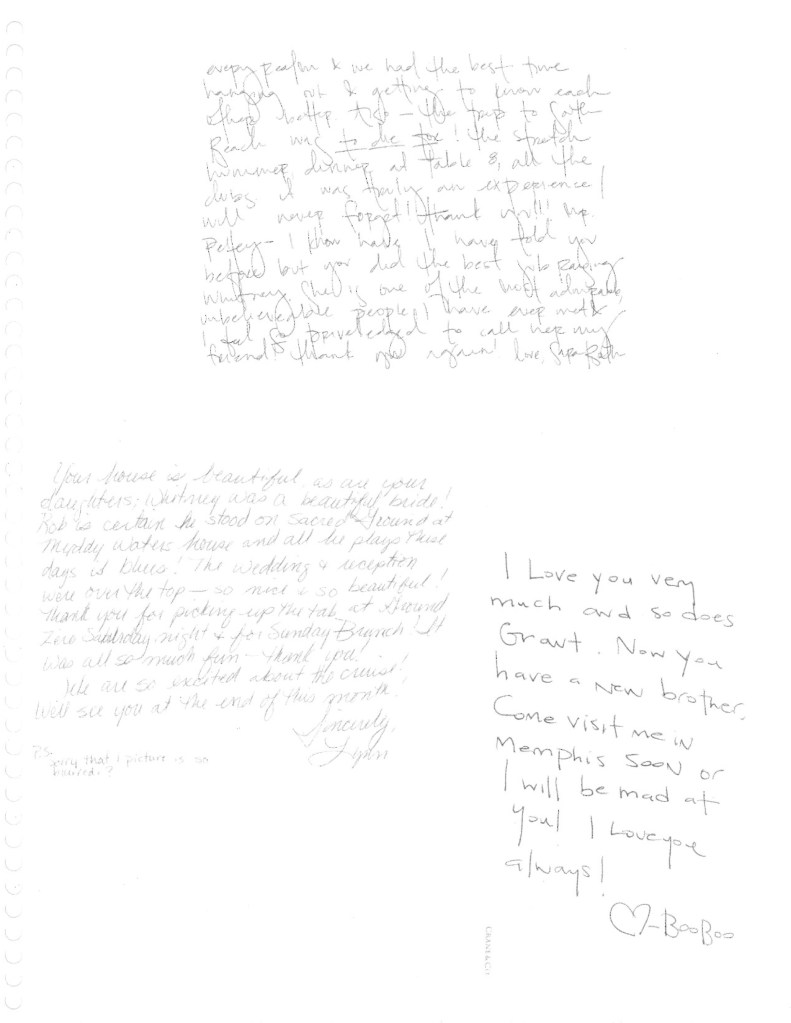 every realm & we had the best time
hanging out & getting to know each
other better too – the trip to South
Beach was to die for! the stretch
hummer, dinner at table 8, all the
clubs it was truly an experience I
will never forget! thank you!!! Mr.
Pettey – I know have I have told you
before but you did the best job raising
Whitney. She is one of the most admirable,
unbelieveable people I have ever met &
I feel so priveledged to call her my
friend! thank you again! love, Sara Beth
Your house is beautiful as are your
daughters; Whitney was a beautiful bride!
Rob is certain he stood on Sacred Ground at
Muddy Waters house and all he plays these
days is Blues! The wedding & reception
were over the top – so nice & so beautiful!
Thank you for picking up the tab at Ground
Zero Saturday night & for Sunday Brunch! It
was all so much fun – thank you!
We are so excited about the cruise!
Will see you at the end of this month.
Sincerely,
Lynn
P.S.
Sorry that 1 picture is so
blurred.?
I Love you very
much and so does
Grant. Now you
have a new brother.
Come visit me in
Memphis soon or
I will be mad at
you! I Love you
always!
♡–BooBoo
CRANE & CO